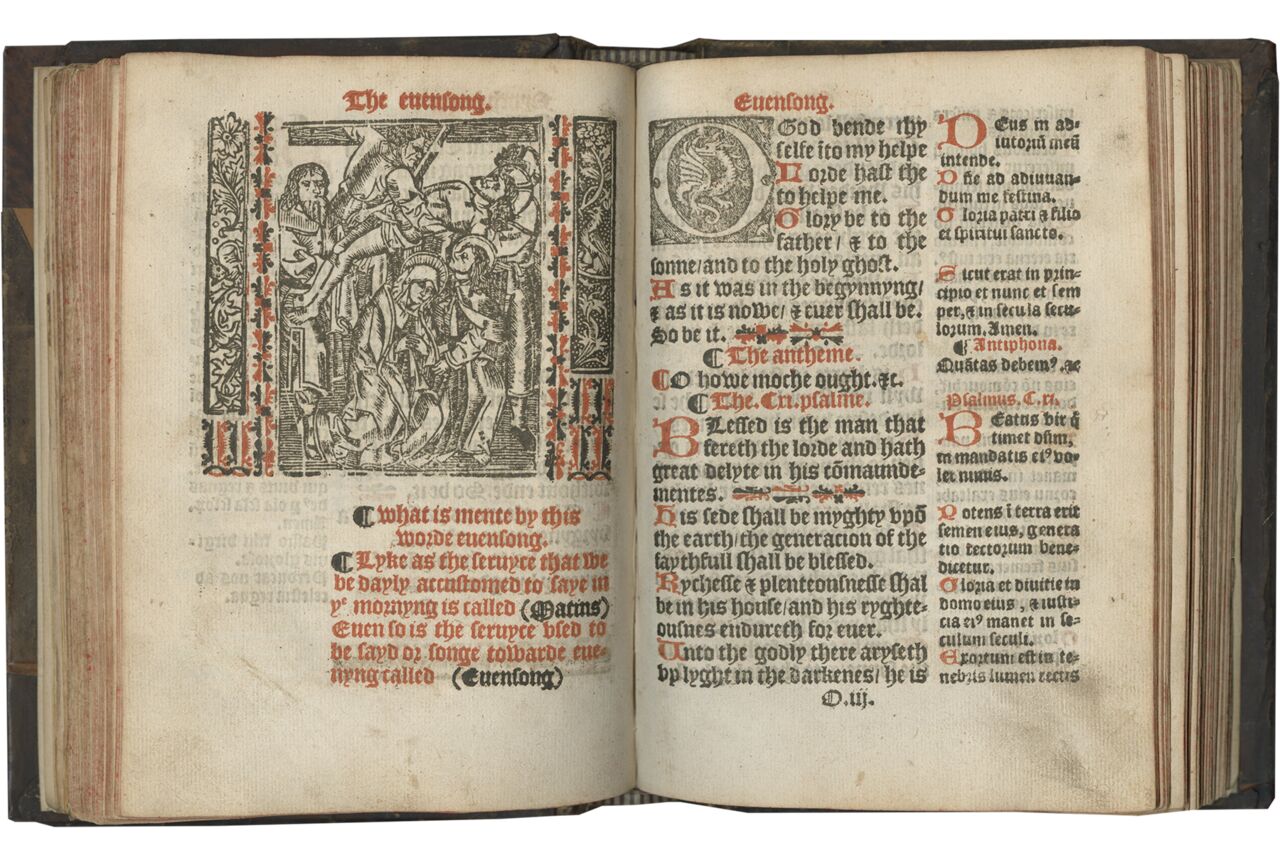 The euensong.
¶ what is mente by this
worde euensong.
¶ Lyke as the seruyce that we
be dayly accustomed to saye in
yᵉ mornyng is called (Matins)
Euen so is the seruyce vsed to
be sayd or songe towarde eue-
nyng called (Euensong)
Euensong.
O God bende thy
selfe ĩto my helpe
Lorde hast the
to helpe me.
Glory be to the
father/ & to the
sonne/and to the holy ghost.
As it was in the begynnyng/
& as it is nowe/ & euer shall be.
So be it.
¶ The antheme.
¶O howe moche ought.&c.
¶ The.Cxi.psalme.
BLessed is the man that
fereth the lorde and hath
great delyte in his cõmaunde-
mentes.
His sede shall be myghty vpõ
the earth/the generacion of the
faythfull shall be blessed.
Rychesse & plenteousnesse shal
be in his house/and his ryghte-
ousnes endureth for euer.
Unto the godly there aryseth
vp lyght in the darkenes/ he is
O.iij.
DEus in ad-
iutoriũ meũ
intende.
Dñe ad adiuuan-
dum me festina.
Gloria patri & filio
et spiritui sancto.
Sicut erat in prin-
cipio et nunc et sem
per,& in secula secu-
lorum. Amen.
¶ Antiphona.
Quãtas debemꝰ. &c
Psalmus. C.xi.
BEatus vir q̃
timet dñm,
in mandatis eiꝰ vo-
let nimis.
Potens ĩ terra erit
semen eius, genera
tio rectorum bene-
dicetur.
Gloria et diuitie in
domo eius, & iusti-
cia eiꝰ manet in se-
culum seculi.
Exortum est in te-
nebris lumen rectis